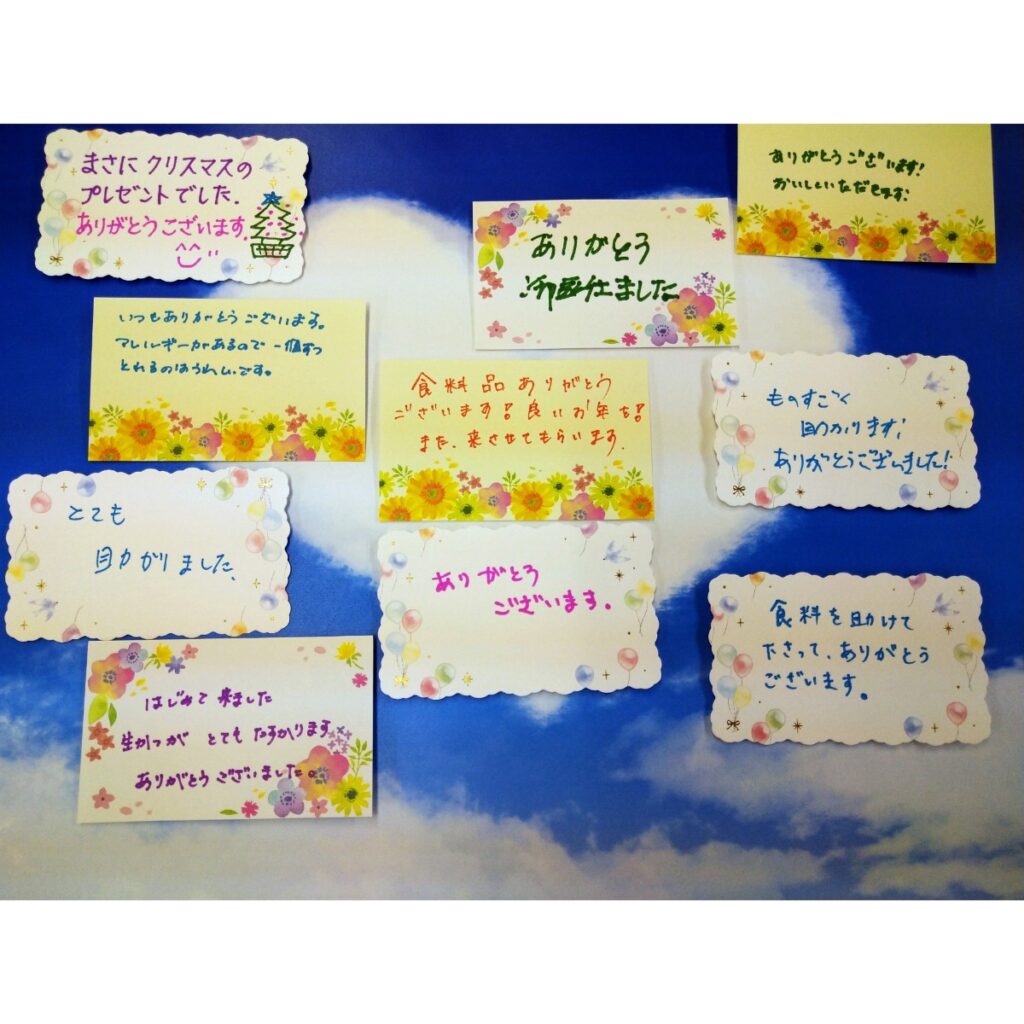 まさに クリスマスの
プレゼントでした.
ありがとうございます.
ありがとうございます!
おいしくいただきます.
ありがとう
御座仕ました
いつもありがとうございます。
アレルギーがあるので 一個ずつ
とれるのはうれしいです。
食料品ありがとう
ございます!良いお年を!
また、来させてもらいます.
ものすごく
助かります!
ありがとうございました!
とても
助かりました、
ありがとう
ございます。
食料を助けて
下さって、ありがとう
ございます。
はじめて 来ました
生かつが とても たすかります
ありがとうございました。